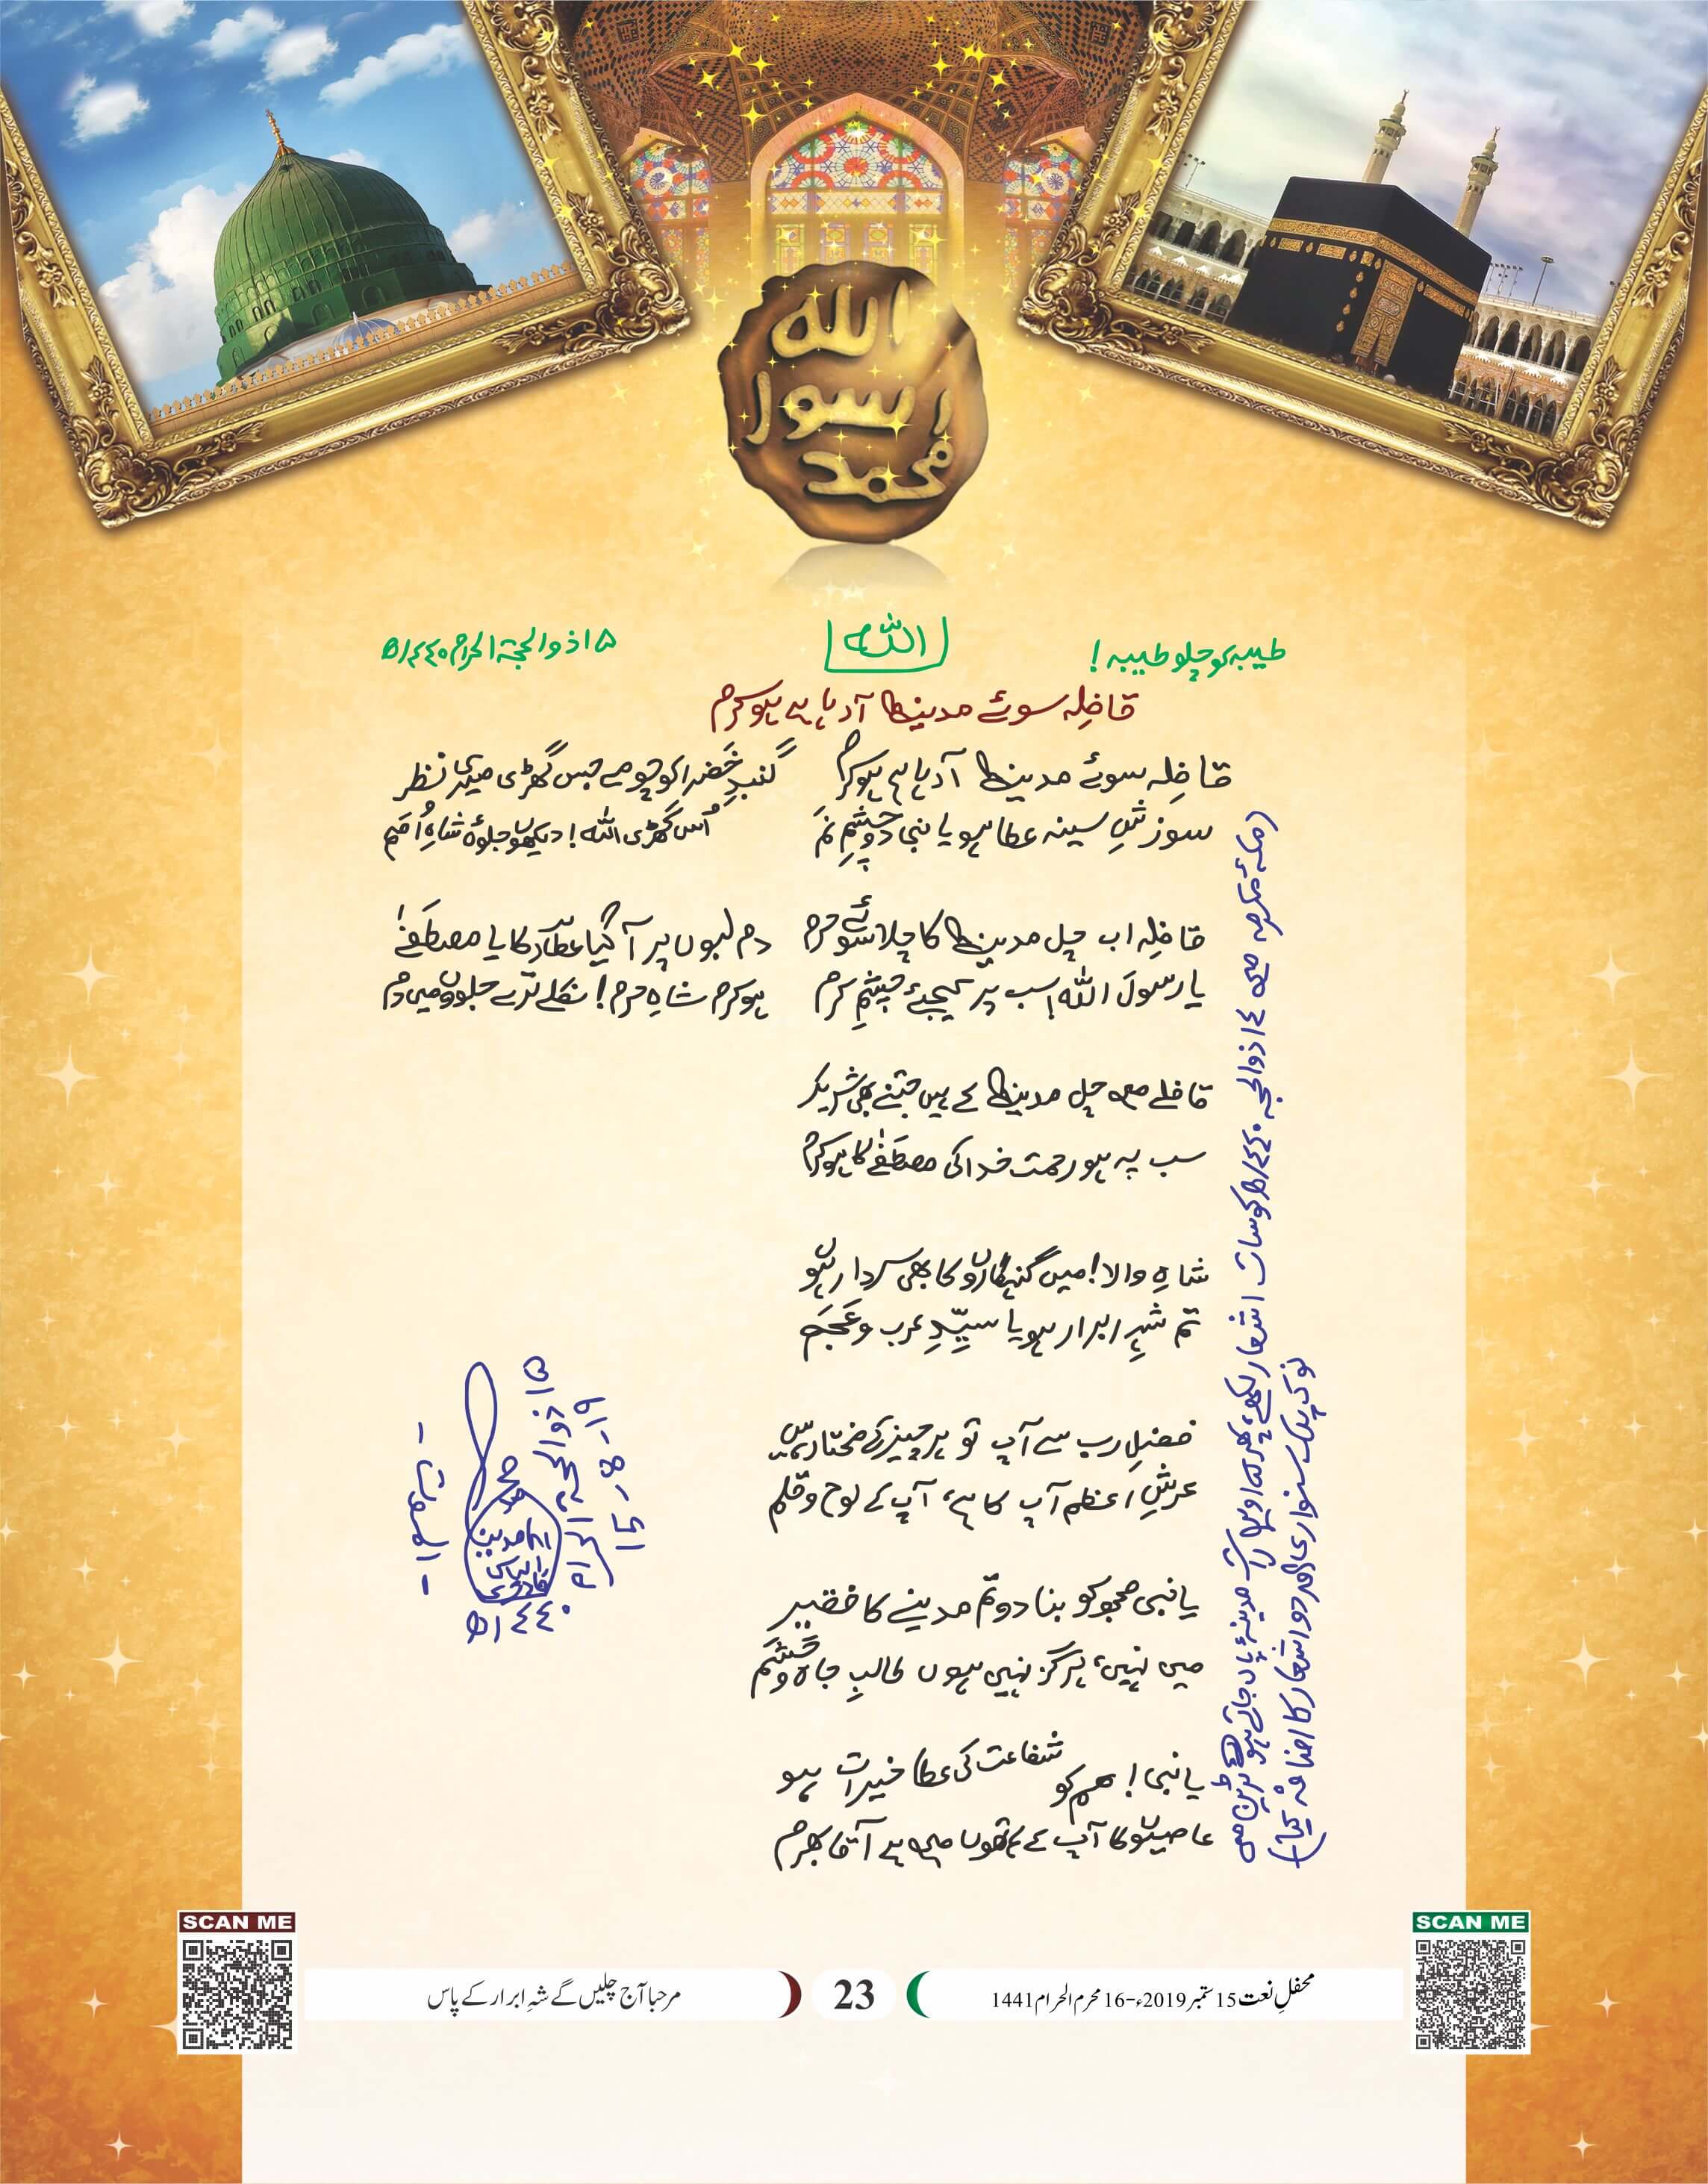 الله
رسول
محمد
طیبہ کو چلو طیبہ!
الله
۱۵ ذوالحجۃ الحرام ۱۴۴۰ھ
قافلہ سوئے مدینہ آرہا ہے ہو کرم
قافلہ سوئے مدینہ آرہا ہے ہو کرم
سوزشِ سینہ عطا ہو یا نبی دو چشمِ نَم
قافلہ اب چل مدینہ کا چلا سوئے حرم
یا رسولَ اللہ! سب پر کیجئے چشمِ کرم
قافلے میں چل مدینہ کے ہیں جتنے بھی شریک
سب پہ ہو رحمت خدا کی مصطَفٰے کا ہو کرم
شاہِ والا! میں گنہگاروں کا بھی سردار ہوں
تم شہِ ابرار ہو یا سیِّدِ عرب و عَجَم
فضلِ رب سے آپ تو ہر چیز کے مختار ہیں
عرشِ اعظم آپ کا ہے، آپ کے لوح و قلم
یا نبی مجھ کو بنا دو تم مدینے کا فقیر
میں نہیں، ہرگز نہیں ہوں طالبِ جاہ و حَشَم
یا نبی! ہم کو شفاعت کی عطا خیرات ہو
عاصیوں کا آپ کے ہاتھوں میں ہے آقا بھرم
گنبدِ خَضرا کو چومے جس گھڑی میری نظر
اُس گھڑی اللہ! دیکھوں جلوۂ شاہِ اُمَم
دم لبوں پر آگیا عطّار کا یا مصطَفٰے
ہو کرم شاہِ حرم! نکلے ترے جلووں میں دم
(مکۂ مکرمہ میں ۱۴ ذوالحجہ ۱۴۴۰ھ کو سات اشعار لکھے، پھر ۱۵ ویں رات مدینۂ پاک جاتے ہوئے ٹرین میں
نوک پلک سنواری اور دو اشعار کا اضافہ کیا)
۱۵ ذوالحجہ الحرام
۱۴۴۰ھ
19-8-15
SCAN ME
SCAN ME
محفلِ نعت 15 ستمبر 2019ء-16 محرم الحرام 1441
23
مرحبا آج چلیں گے شہِ ابرار کے پاس